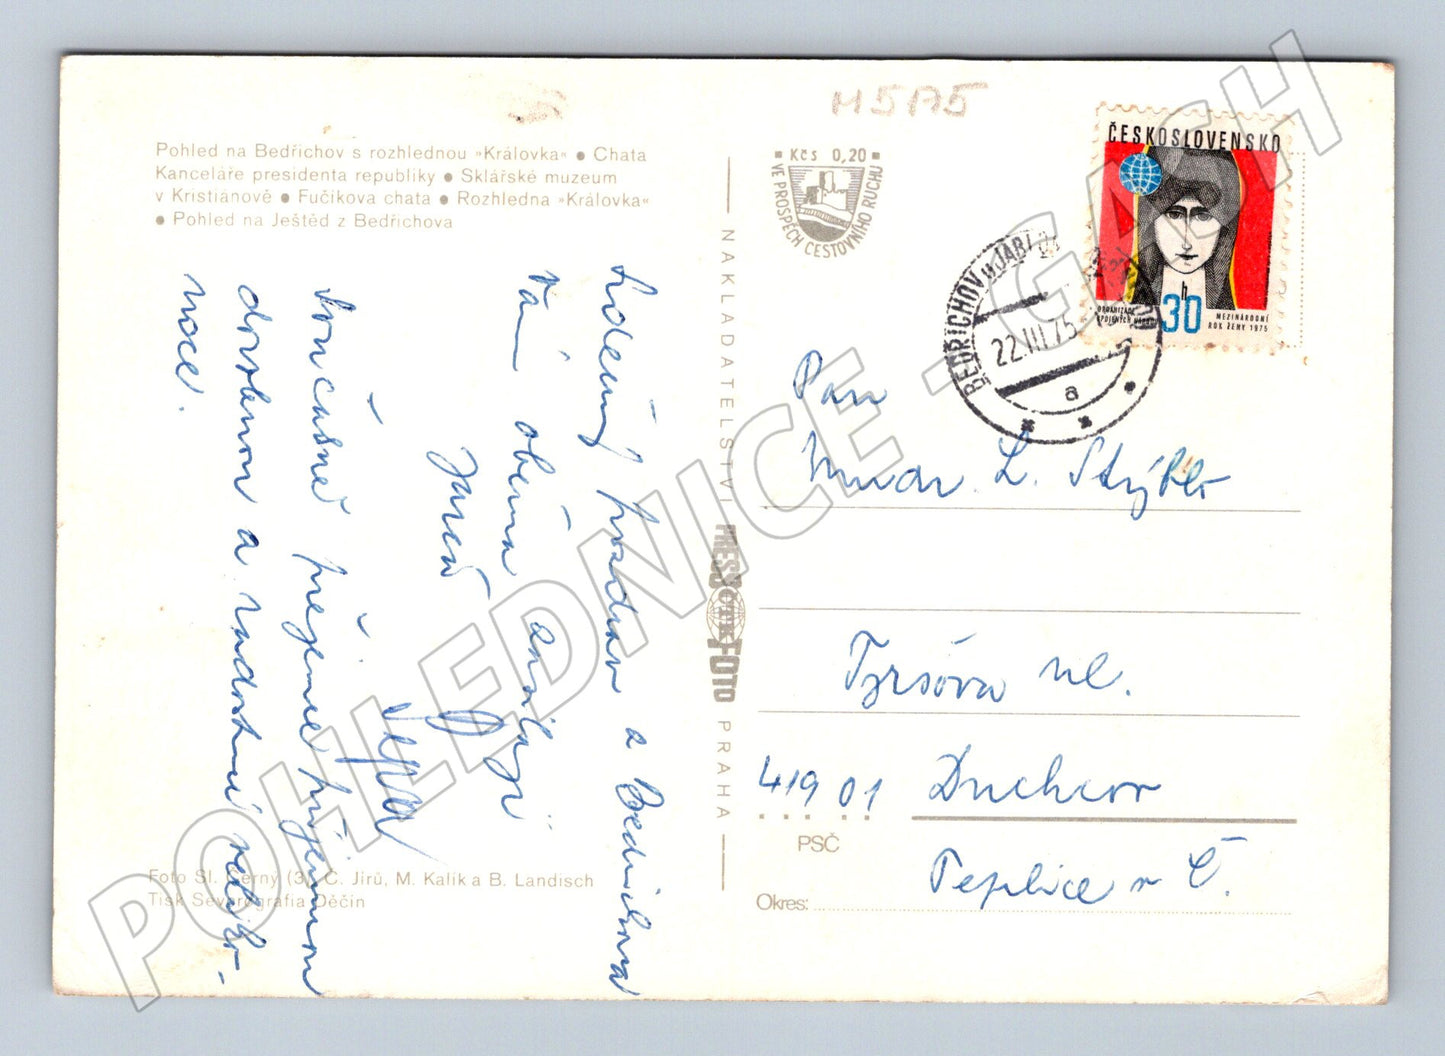 Pohled na Bedřichov s rozhlednou »Královka« ● Chata
Kanceláře presidenta republiky ● Sklářské muzeum
v Kristiánově ● Fučíkova chata ● Rozhledna »Královka«
● Pohled na Ještěd z Bedřichova
Srdečný pozdrav z Bedřichova
Vám oběma zasílají
Současně přejeme příjemnou
dovolenou a radostné veliko-
noce.
Foto Sl. Černý (3), C. Jírů, M. Kalík a B. Landisch
Tisk Severografia Děčín
NAKLADATELSTVÍ PRESSFOTO PRAHA
ČTK
■ Kčs 0,20 ■
VE PROSPĚCH CESTOVNÍHO RUCHU
M5175
ČESKOSLOVENSKO
30 h
ORGANIZACE
SPOJENÝCH NÁRODŮ
MEZINÁRODNÍ
ROK ŽENY 1975
BEDŘICHOV u JABL.
22.III.75
a
Pan
Mudr. L. Stýblo
Tyršova ul.
419 01 Duchcov
PSČ
Teplice v Č.
Okres:
POHLEDNICE - GASH